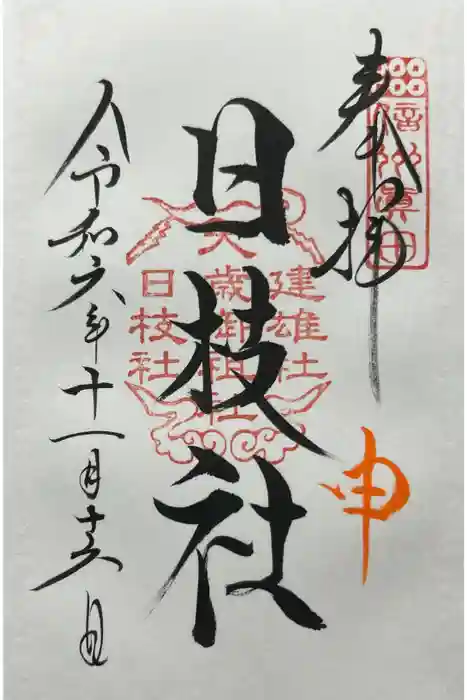 信州眞田
奉拝
申
日枝社
建雄社
大歳御祖社
日枝社
令和六年十一月十六日